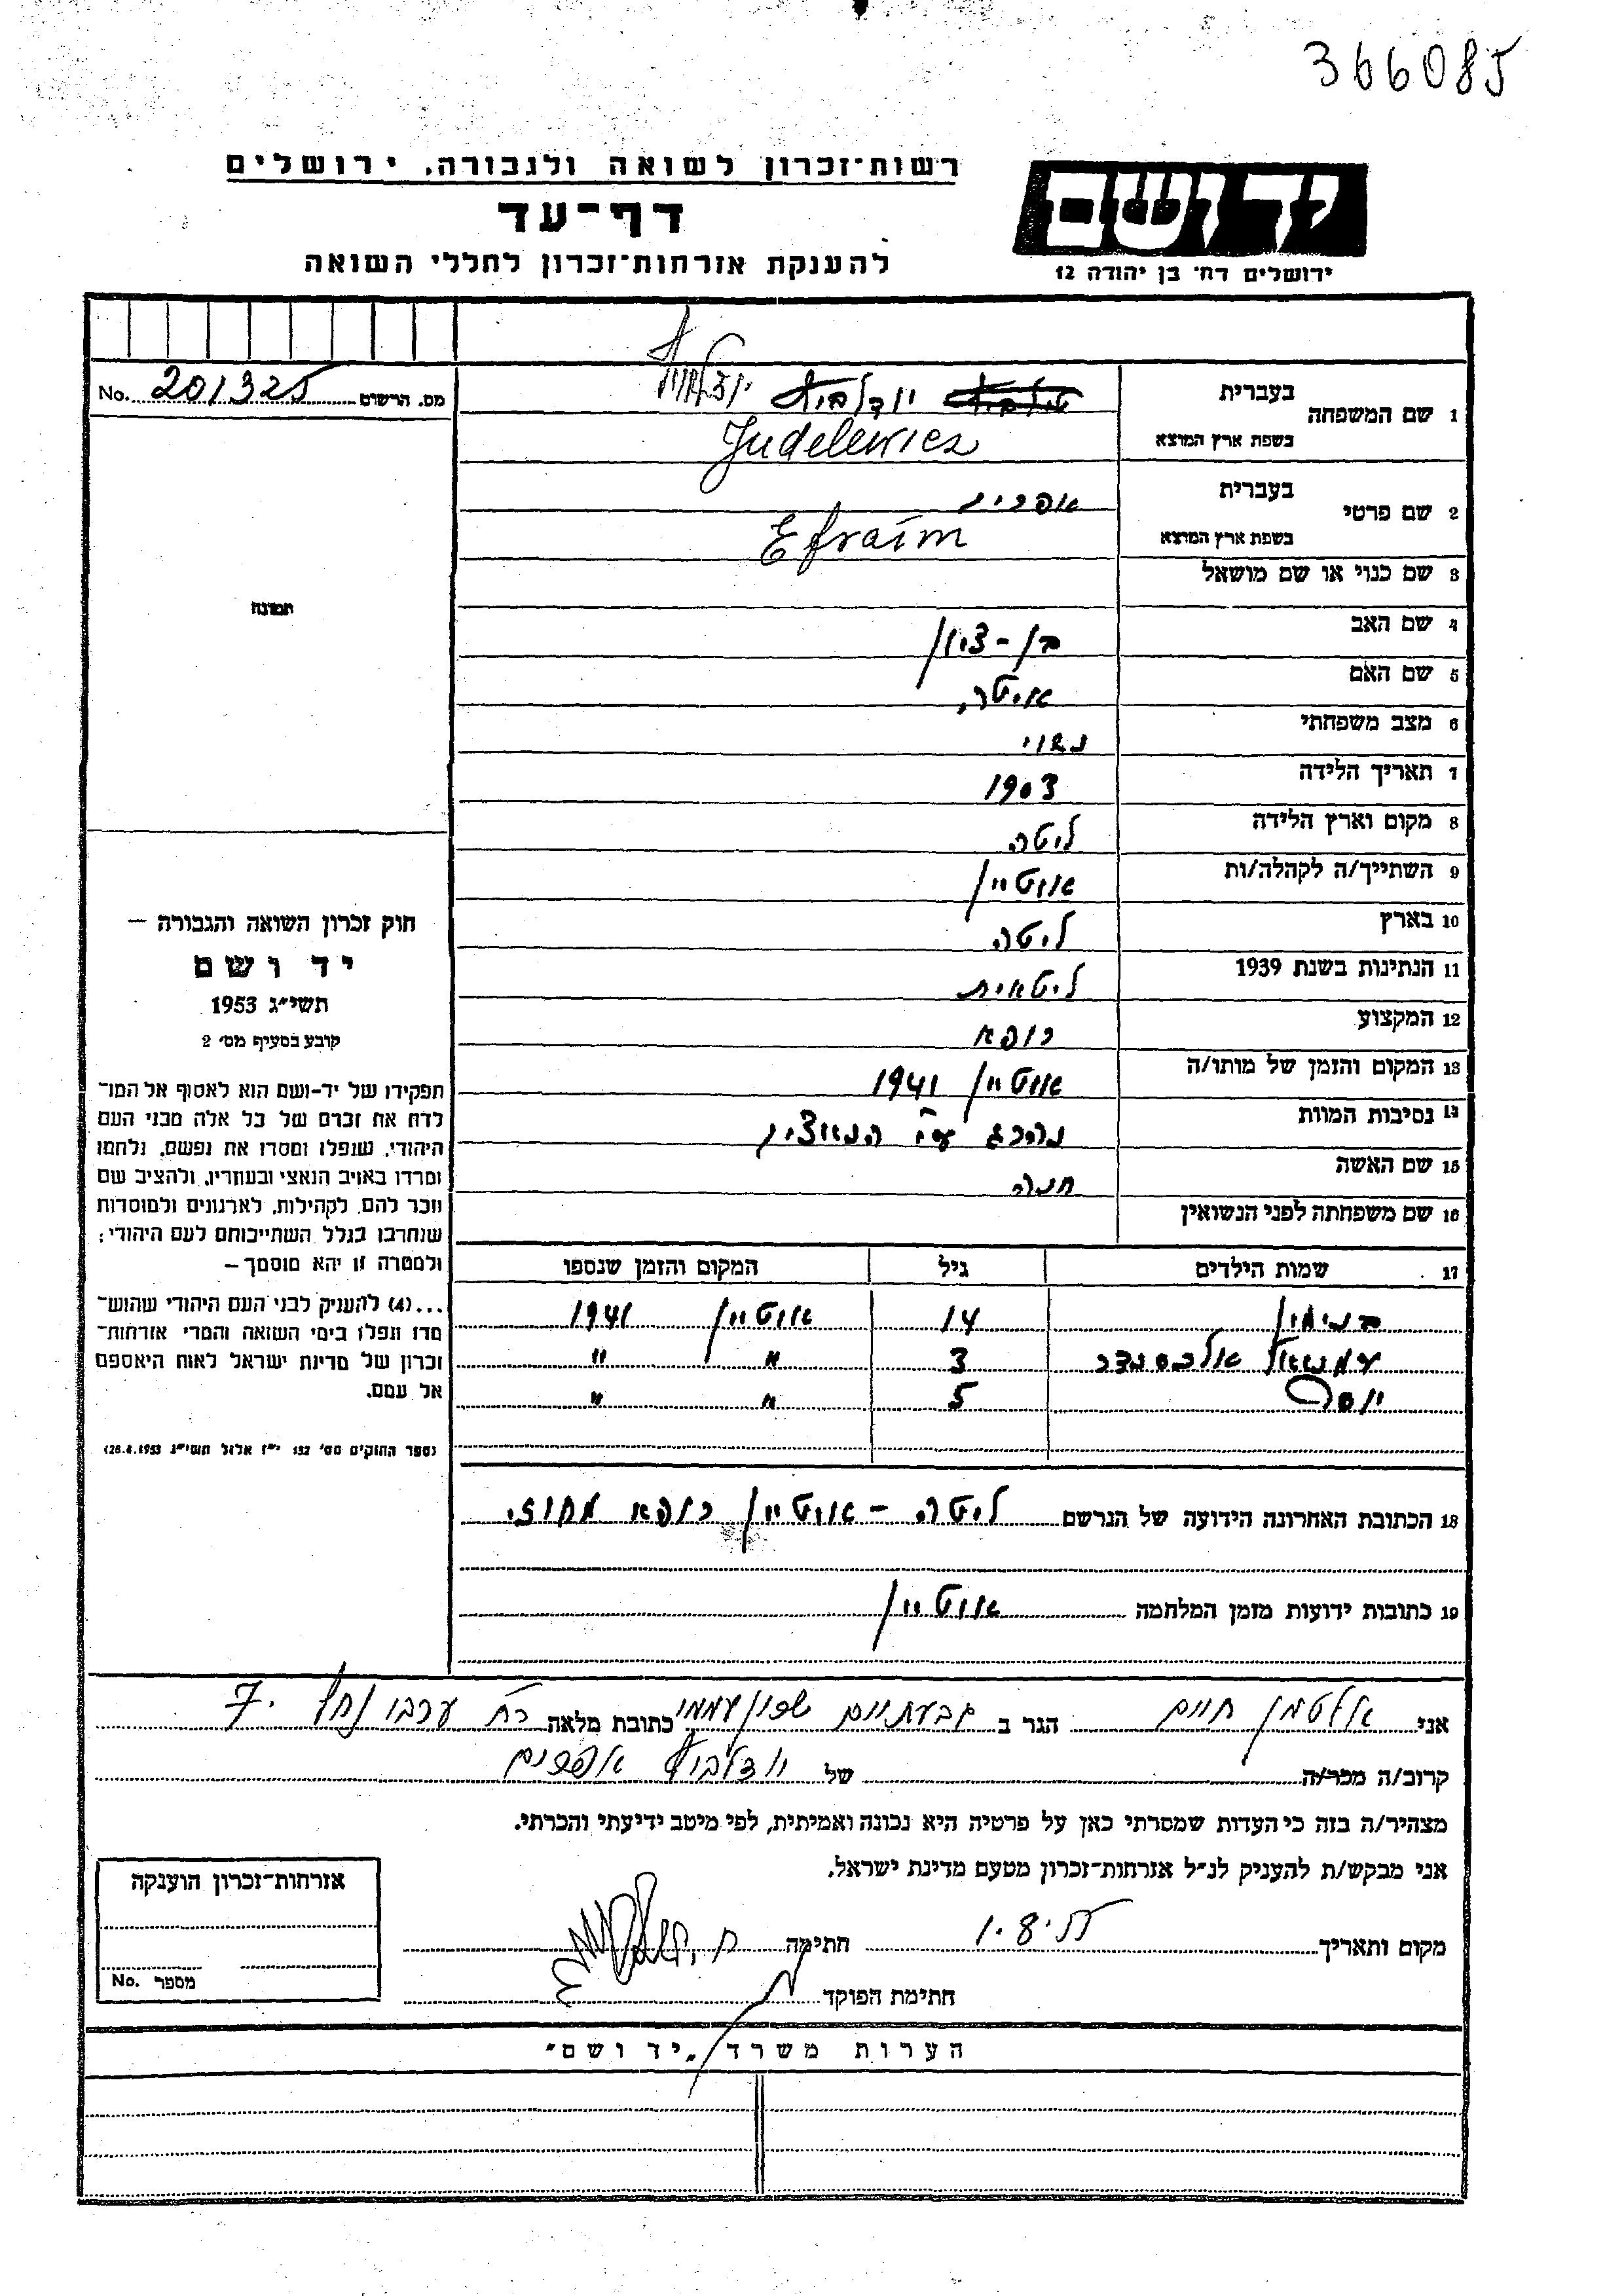 366085
רשות־זכרון לשואה ולגבורה, ירושלים
דף־עד
להענקת אזרחות־זכרון לחללי השואה
יד ושם
ירושלים רח׳ בן יהודה 12
מס. הרשום 201325 No.
1 שם המשפחה
בעברית יודלביץ
בשפת ארץ המוצא Judelewicz
2 שם פרטי
בעברית אפרים
בשפת ארץ המוצא Efraim
3 שם כנוי או שם מושאל
4 שם האב בן-ציון
5 שם האם
6 מצב משפחתי נשוי
7 תאריך הלידה 1903
8 מקום וארץ הלידה ליטה
9 השתייך/ה לקהלה/ות אוטיין
10 בארץ ליטה
11 הנתינות בשנת 1939 ליטאית
12 המקצוע רופא
13 המקום והזמן של מותו/ה אוטיין 1941
13 נסיבות המוות נהרג ע״י הנאצים
15 שם האשה חנה
16 שם משפחתה לפני הנשואין
17 שמות הילדים גיל המקום והזמן שנספו
בנימין 14 אוטיין 1941
עמנואל אלכסנדר 3 " "
יוסף 5 " "
18 הכתובת האחרונה הידועה של הנרשם ליטה – אוטיין רופא מחוזי
19 כתובות ידועות מזמן המלחמה אוטיין
תמונה
חוק זכרון השואה והגבורה –
יד ושם
תשי״ג 1953
קובע בסעיף מס׳ 2
תפקידו של יד-ושם הוא לאסוף אל המו־
לדת את זכרם של כל אלה מבני העם
היהודי, שנפלו ומסרו את נפשם, נלחמו
ומרדו באויב הנאצי ובעוזריו, ולהציב שם
וזכר להם, לקהילות, לארגונים ולמוסדות
שנחרבו בגלל השתייכותם לעם היהודי;
ולמטרה זו יהא מוסמך –
...(4) להעניק לבני העם היהודי שהוש־
מדו ונפלו בימי השואה והמרי אזרחות־
זכרון של מדינת ישראל לאות היאספם
אל עמם.
(ספר החוקים מס׳ 132 י״ז אלול תשי״ג 28.8.1953)
אני אלטמן חיים הגר ב גבעתיים שכון עממי כתובת מלאה רח ערבי נחל 7
קרוב/ה מכר/ה של יודלביץ אפרים
מצהיר/ה בזה כי העדות שמסרתי כאן על פרטיה היא נכונה ואמיתית, לפי מיטב ידיעתי והכרתי.
אני מבקש/ת להעניק לנ״ל אזרחות־זכרון מטעם מדינת ישראל.
מקום ותאריך חתימה
חתימת הפוקד
אזרחות־זכרון הוענקה
מספר No.
הערות משרד „יד ושם״